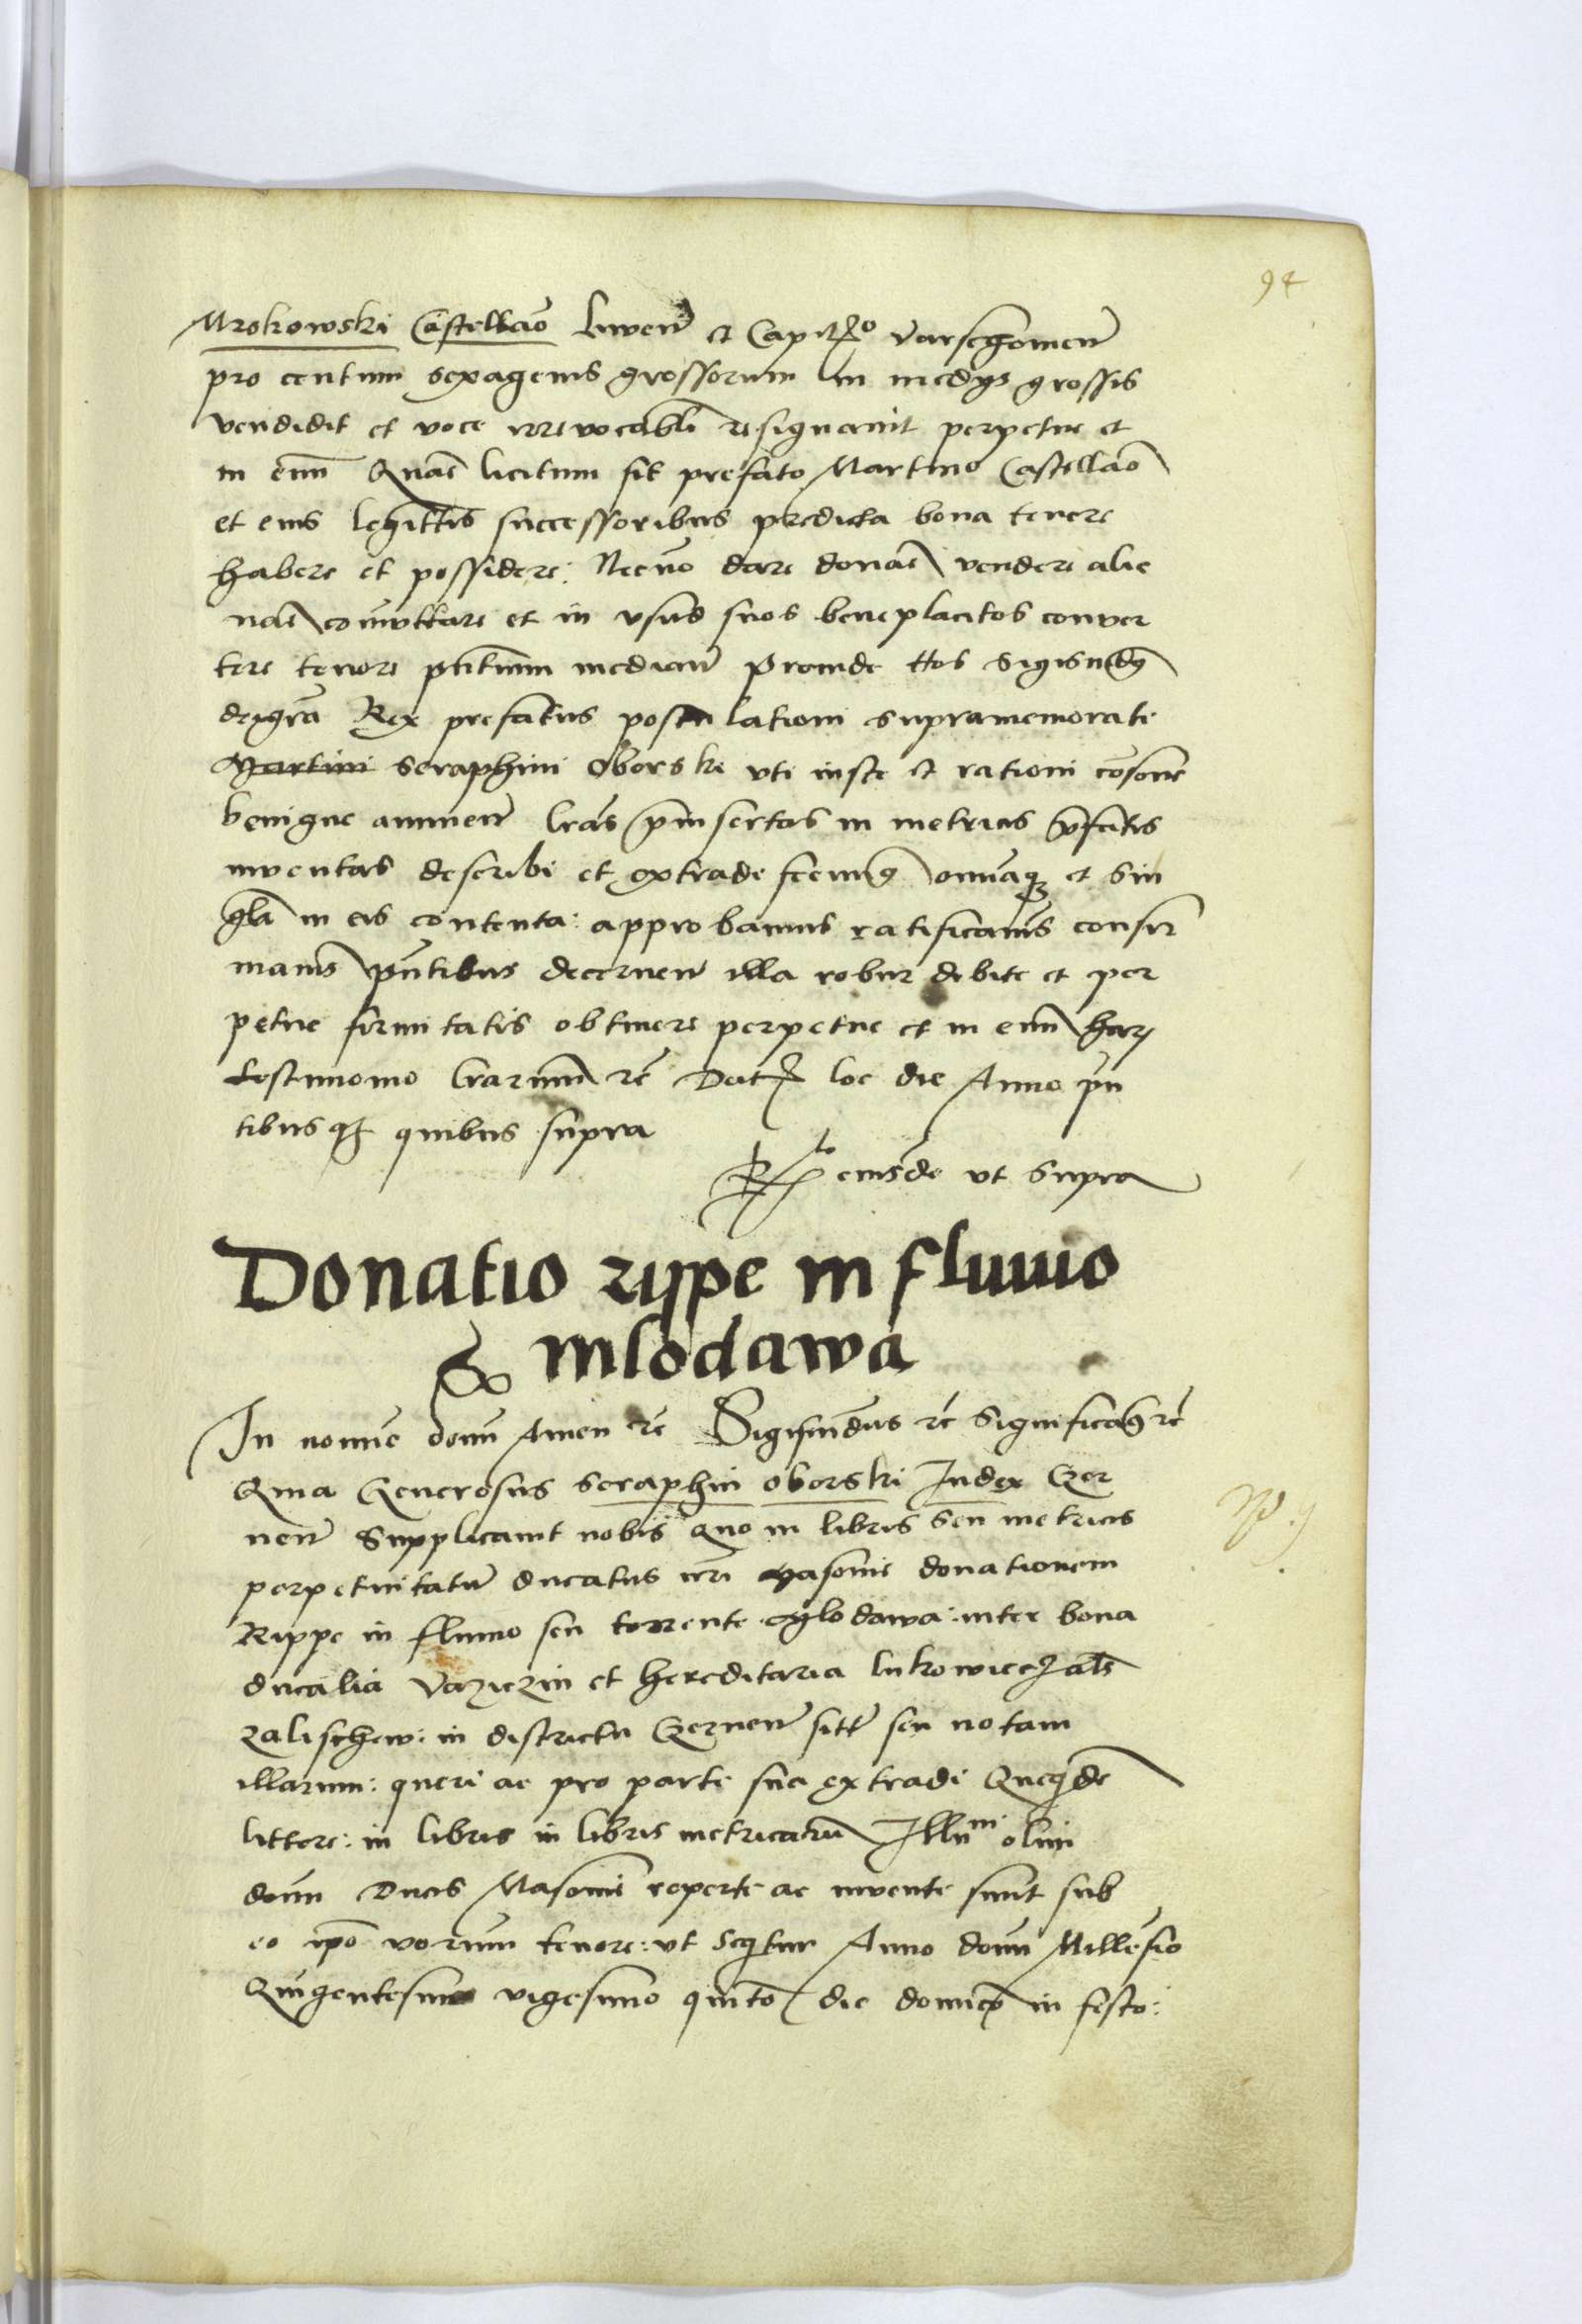 94
Mrokowski Castellão liwen̄ et Capitꝫo varschouien̄
pro centum sexagenis grossorum in medys grossis
vendidit et voce irrevocabli resignauit perpetue et
in eūm Quat̄ licitum sit prefato Martino Castellão
et eius legittīs successoribus predicta bona tenere
habere et possidere: Necnō dare donar̄ vendere alie
nar̄ comuttare et in vsus suos beneplacitos conver
tere tenore pn̄tium median̄ Proinde Nos Sigismdꝰ
dei gr̄a Rex prefatus postulationi supramemorate
Martini Seraphini Oborski vti iuste et rationi cōsone
benigne annuen̄ lrās p̄insertas in metricis p̄fatis
inventas describi et extrade fecimꝰ omniaqꝫ et sin
gl̄a in eis contenta: approbamus ratificamꝰ confir
mamꝰ pn̄tibus decernen̄ illa robur debite et per
petue firmitatis obtinere perpetue et in eūm harꝫ
testimonio lr̄arum rc̄ Datꝫ loc die Anno pn̄
tibus qꝫ quibus supra
Rto eiusdē vt supra
Donatio rype in fluuio
mlodawa
In nomīe domī Amen rc̄ Sigismūdus rc̄ Significamꝰ rc̄
Quia Generosus Seraphin oborski Iudex Czer
nen̄ Supplicauit nobis Quo in libris seu metricis
perpetuitatū ducatus nr̄i Masouie donationem
Rippe in fluuio seu torrente Mlodawa: inter bona
ducalia Vaziczin et hereditaria lukowiecꝫ al̄s
zalischew: in districtu Czernen̄ sitt̄ seu notam
illarum: queri ac pro parte sua extradi Queqd̄e
littere: in libris in libris metricarū Illūmi olim
domī Ducis Masouie reperte ac invente sunt sub
eo ip̄o verum tenore: vt seqtur Anno domī Millesīo
Quingentesimo vigesimo quīto die domīco in festo: